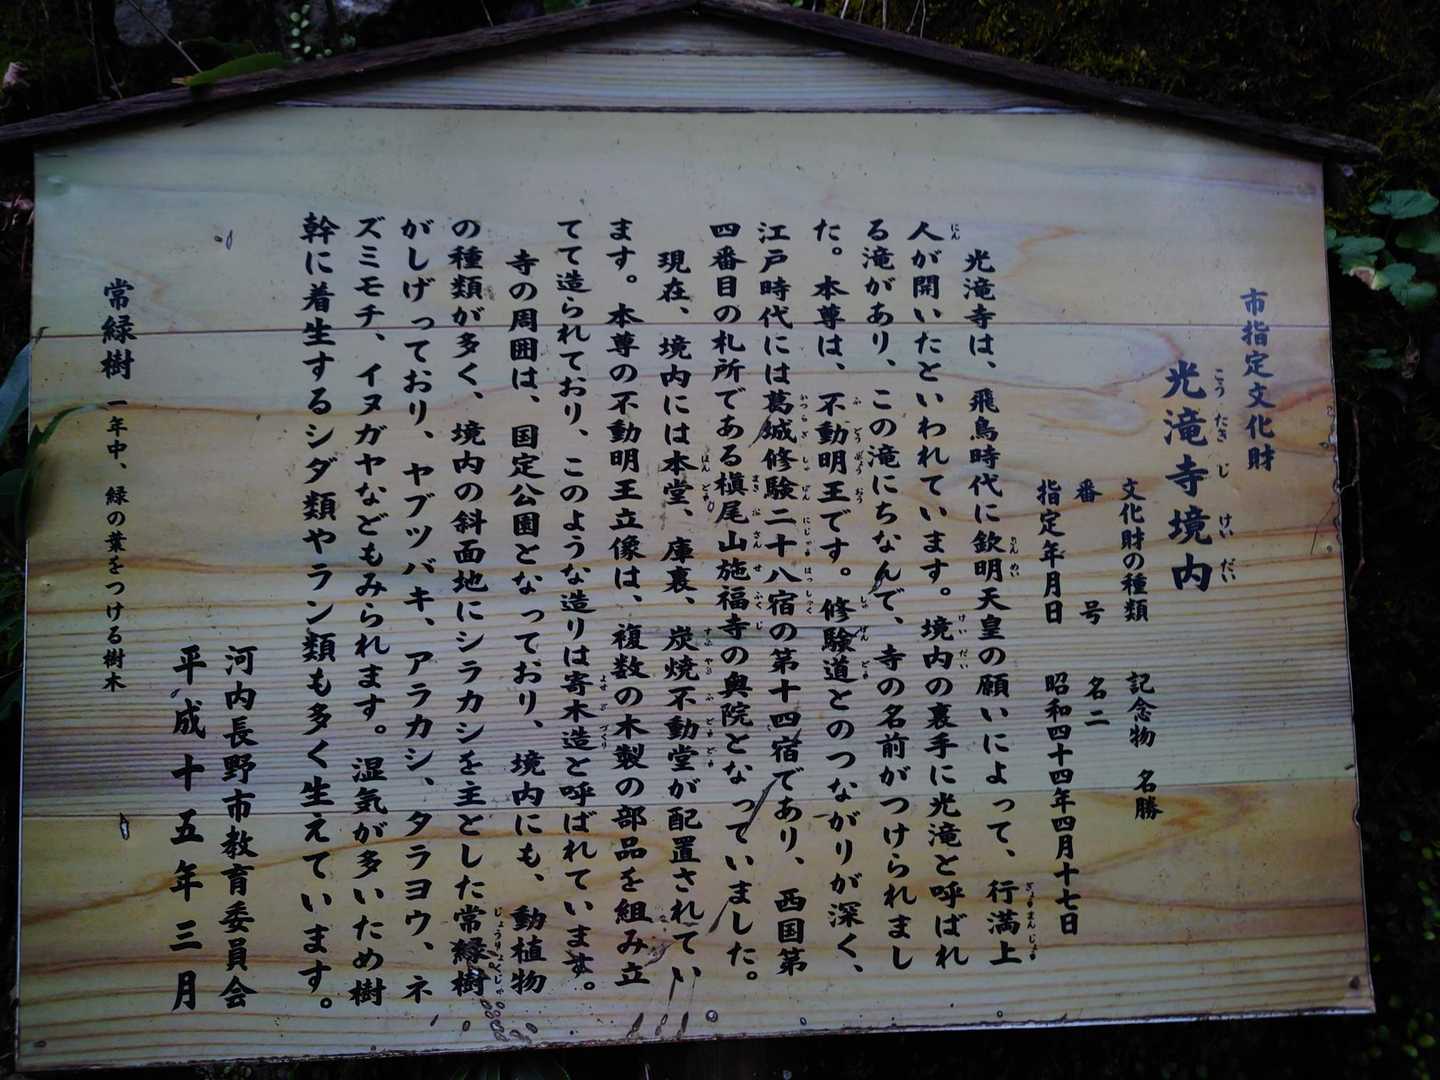 市指定文化財
光滝寺境内
こうたきじけいだい
文化財の種類 記念物 名勝
番号 名二
指定年月日 昭和四十四年四月十七日
光滝寺は、飛鳥時代に欽明天皇の願いによって、行満上
人が開いたといわれています。境内の裏手に光滝と呼ばれ
る滝があり、この滝にちなんで、寺の名前がつけられまし
た。本尊は、不動明王です。修験道とのつながりが深く、
江戸時代には葛城修験二十八宿の第十四宿であり、西国第
四番目の札所である槇尾山施福寺の奥院となっていました。
現在、境内には本堂、庫裏、炭焼不動堂が配置されてい
ます。本尊の不動明王立像は、複数の木製の部品を組み立
てて造られており、このような造りは寄木造と呼ばれています。
寺の周囲は、国定公園となっており、境内にも、動植物
の種類が多く、境内の斜面地にシラカシを主とした常緑樹
がしげっており、ヤブツバキ、アラカシ、タラヨウ、ネ
ズミモチ、イヌガヤなどもみられます。湿気が多いため樹
幹に着生するシダ類やラン類も多く生えています。
河内長野市教育委員会
平成十五年三月
常緑樹 一年中、緑の葉をつける樹木